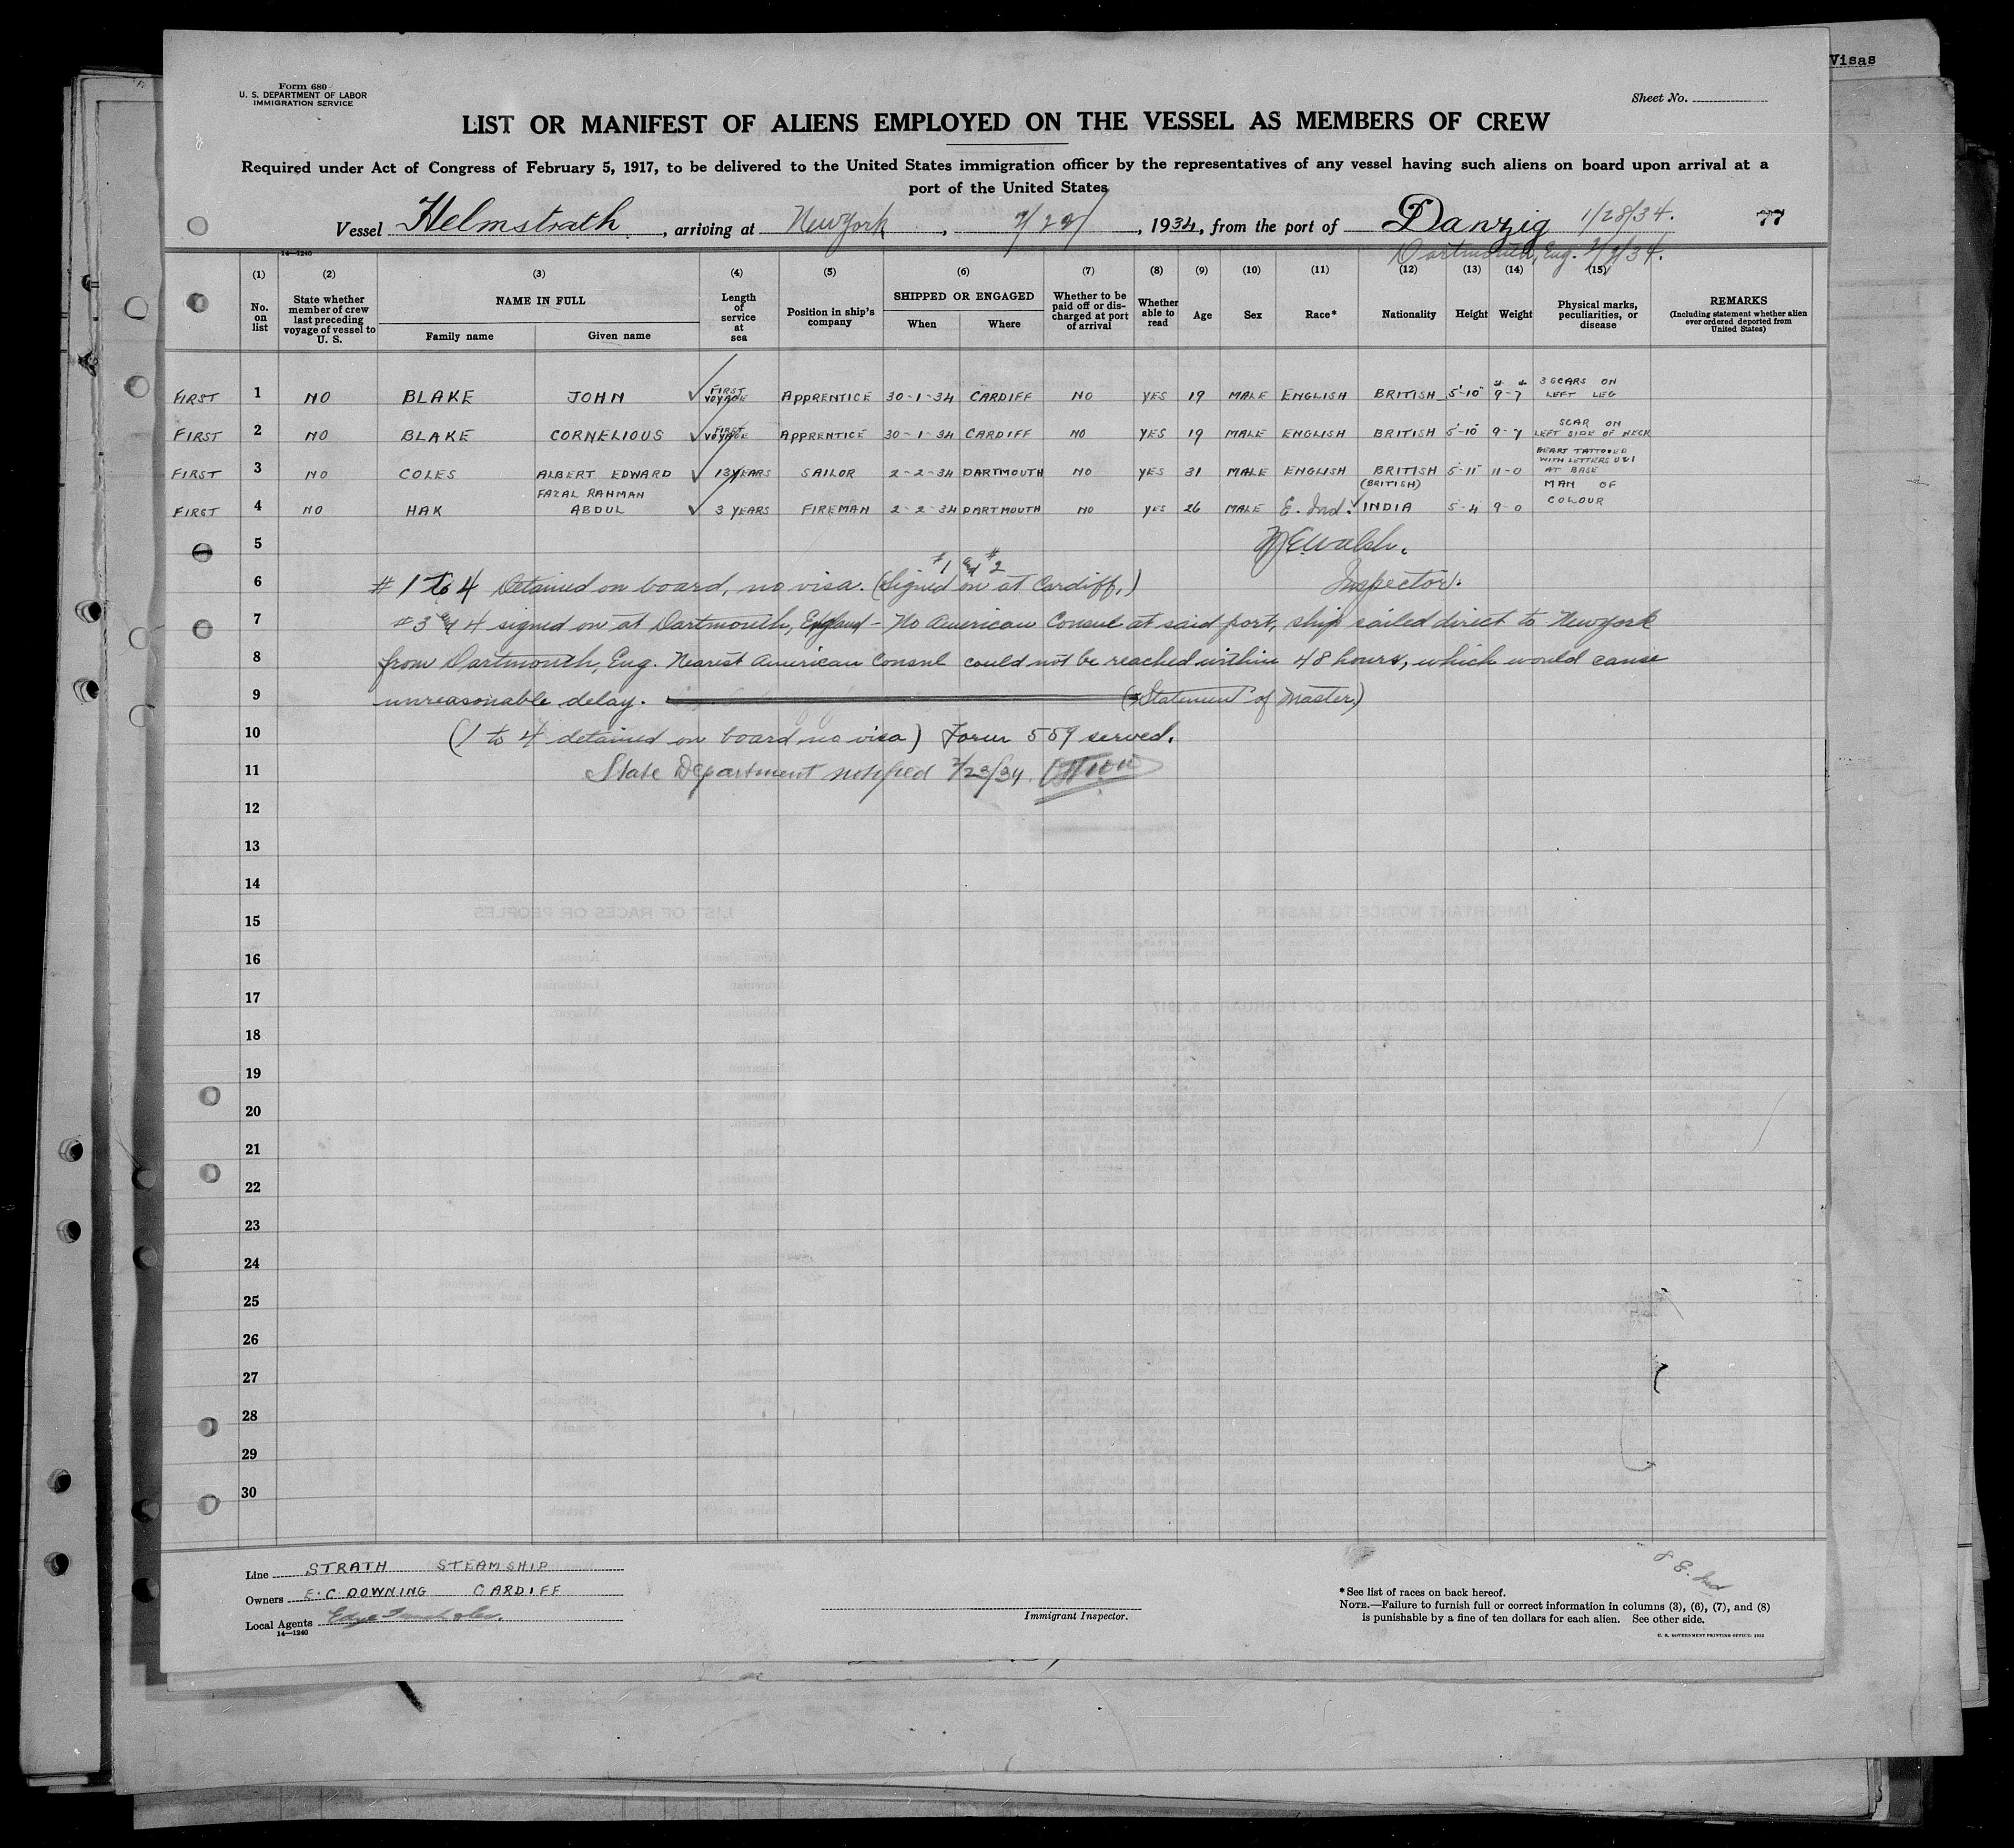 Visas
Form 680
U. S. DEPARTMENT OF LABOR
IMMIGRATION SERVICE
Sheet No.
LIST OR MANIFEST OF ALIENS EMPLOYED ON THE VESSEL AS MEMBERS OF CREW
Required under Act of Congress of February 5, 1917, to be delivered to the United States immigration officer by the representatives of any vessel having such aliens on board upon arrival at a
port of the United States
Vessel Helmstrath, arriving at New York, 2/22/, 1934, from the port of Danzig 1/28/34. 77
Dartmouth, Eng. 2/2/34.
14—1240
(1) (2) (3) (4) (5) (6) (7) (8) (9) (10) (11) (12) (13) (14) (15)
No. on list State whether member of crew last preceding voyage of vessel to U. S. NAME IN FULL Family name Given name Length of service at sea Position in ship's company SHIPPED OR ENGAGED When Where Whether to be paid off or discharged at port of arrival Whether able to read Age Sex Race* Nationality Height Weight Physical marks, peculiarities, or disease REMARKS (Including statement whether alien ever ordered deported from United States)
FIRST 1 NO BLAKE JOHN FIRST VOYAGE APPRENTICE 30-1-34 CARDIFF NO YES 19 MALE ENGLISH BRITISH 5'-10" 9-7 3 SCARS ON LEFT LEG
FIRST 2 NO BLAKE CORNELIOUS FIRST VOYAGE APPRENTICE 30-1-34 CARDIFF NO YES 19 MALE ENGLISH BRITISH 5'-10" 9-7 SCAR ON LEFT SIDE OF NECK
FIRST 3 NO COLES ALBERT EDWARD 13 YEARS SAILOR 2-2-34 DARTMOUTH NO YES 31 MALE ENGLISH BRITISH 5-11" 11-0 HEART TATTOOED WITH LETTERS U & I AT BASE
FIRST 4 NO HAK FAZAL RAHMAN ABDUL 3 YEARS FIREMAN 2-2-34 DARTMOUTH NO YES 26 MALE E. Ind. (BRITISH) INDIA 5-4 9-0 MAN OF COLOUR
5 Walsh.
Inspector.
6 #1 to 4 Detained on board, no visa. (#1 & #2 Signed on at Cardiff.)
7 #3 & 4 signed on at Dartmouth, England - No American Consul at said port, ship sailed direct to New York
8 from Dartmouth, Eng. Nearest American Consul could not be reached within 48 hours, which would cause
9 unreasonable delay. (Statement of Master)
10 (1 to 4 detained on board no visa) Form 559 served.
11 State Department notified 2/23/34.
12
13
14
15
16
17
18
19
20
21
22
23
24
25
26
27
28
29
30
Line STRATH STEAMSHIP
Owners E. C. DOWNING CARDIFF
Local Agents
14—1240
Immigrant Inspector.
8 E. Ind
*See list of races on back hereof.
NOTE.—Failure to furnish full or correct information in columns (3), (6), (7), and (8)
is punishable by a fine of ten dollars for each alien. See other side.
U. S. GOVERNMENT PRINTING OFFICE: 1932